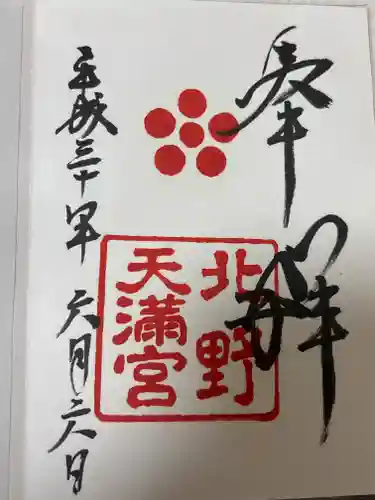 奉拝
北野
天満宮
平成三十年六月二八日